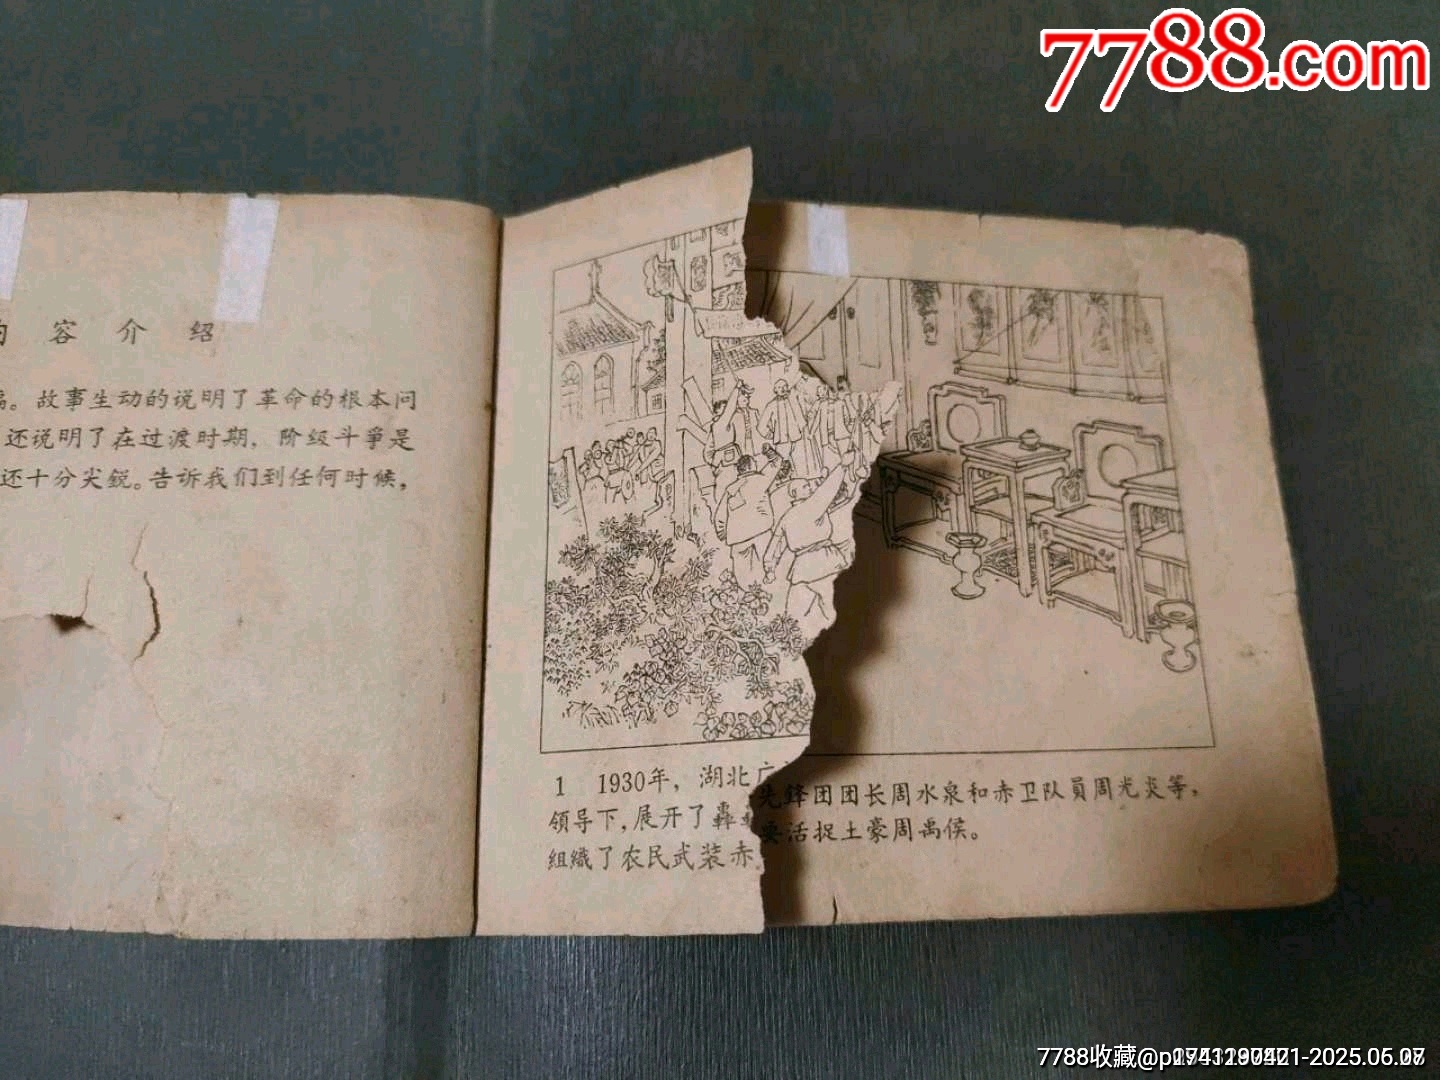 7788.com
内容介绍
。故事生动的说明了革命的根本问
还说明了在过渡时期，阶级斗爭是
还十分尖銳。告诉我们到任何时候，
1 1930年，湖北广
領导下，展开了轟
組織了农民武装赤
先鋒团团长周水泉和赤卫队員周光炎等，
要活捉土豪周禹侯。
7788收藏